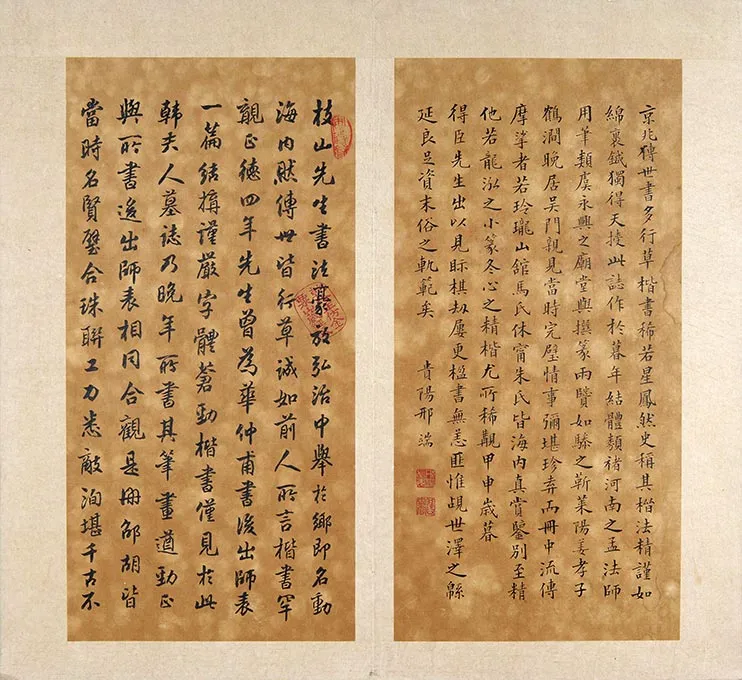 京兆傳世書多行草楷書稀若星鳳然史稱其楷法精謹如
綿裹鐵獨得天授此誌作於暮年結體類褚河南之孟法師
用筆類虞永興之廟堂與撰篆兩賢如驂之靳萊陽姜孝子
鶴澗晚居吴門親見當時完璧情事彌堪珍弆兩冊中流傳
摩挲者若玲瓏山館馬氏休甯朱氏皆海内真賞鑒別至精
他若龍泓之小篆冬心之精楷尤所稀覯甲申歲暮
得臣先生出以見眎棋劫屢更楹書無恙匪惟覘世澤之緜
延良足資末俗之軌範矣
貴陽邢端
枝山先生書法豪放弘治中舉於鄉即名動
海内然傳世皆行草誠如前人所言楷書罕
觀正德四年先生曾為華仲甫書後出師表
一篇結搆謹嚴字體蒼勁楷書僅見於此
韓夫人墓誌乃晚年所書其筆畫遒勁正
與所書後出師表相同合觀是冊邵胡皆
當時名賢璧合珠聯工力悉敵洵堪千古不